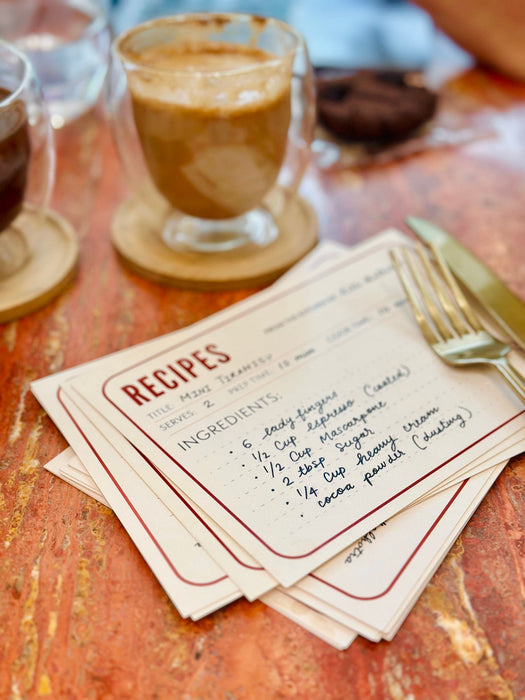 RECIPES
FROM THE KITCHEN OF:
TITLE: MINI TIRAMISU
SERVES: 2 PREP TIME: 15 mins COOK TIME:
INGREDIENTS:
• 6 lady fingers
• 1/2 Cup espresso (cooled)
• 1/2 Cup Mascarpone
• 2 tbsp sugar
• 1/4 Cup heavy cream
• cocoa powder (dusting)